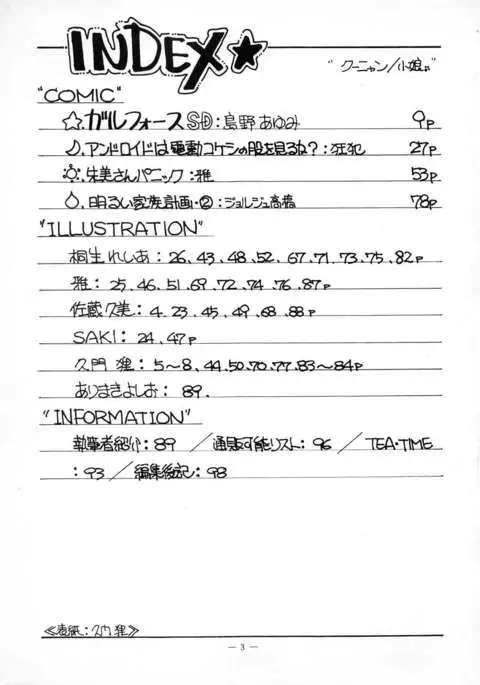 INDEX★
"クーニャン/小娘"
"COMIC"
☆.ガルフォースSD:島野あゆみ 9p
☽.アンドロイドは電動コケシの股を見るね?:狂犯 27p
朱美さんパニック:雅 53p
明るい家族計画・②:ジョルジュ高橋 78p
"ILLUSTRATION"
桐生れしあ:26、43、48、52、67、71、73、75、82p
雅:25、46、51、69、72、74、76、87p
佐蔵久美:4、23、45、49、68、88p
SAKI:24、47p
久門 狸:5〜8、44、50、70、77、83〜84p
ありまきよしお:89.
"INFORMATION"
執筆者紹介:89 /通販可能リスト:96 / TEA・TIME
:93 /編集後記:98
≪表紙:久門 狸≫
— 3 —